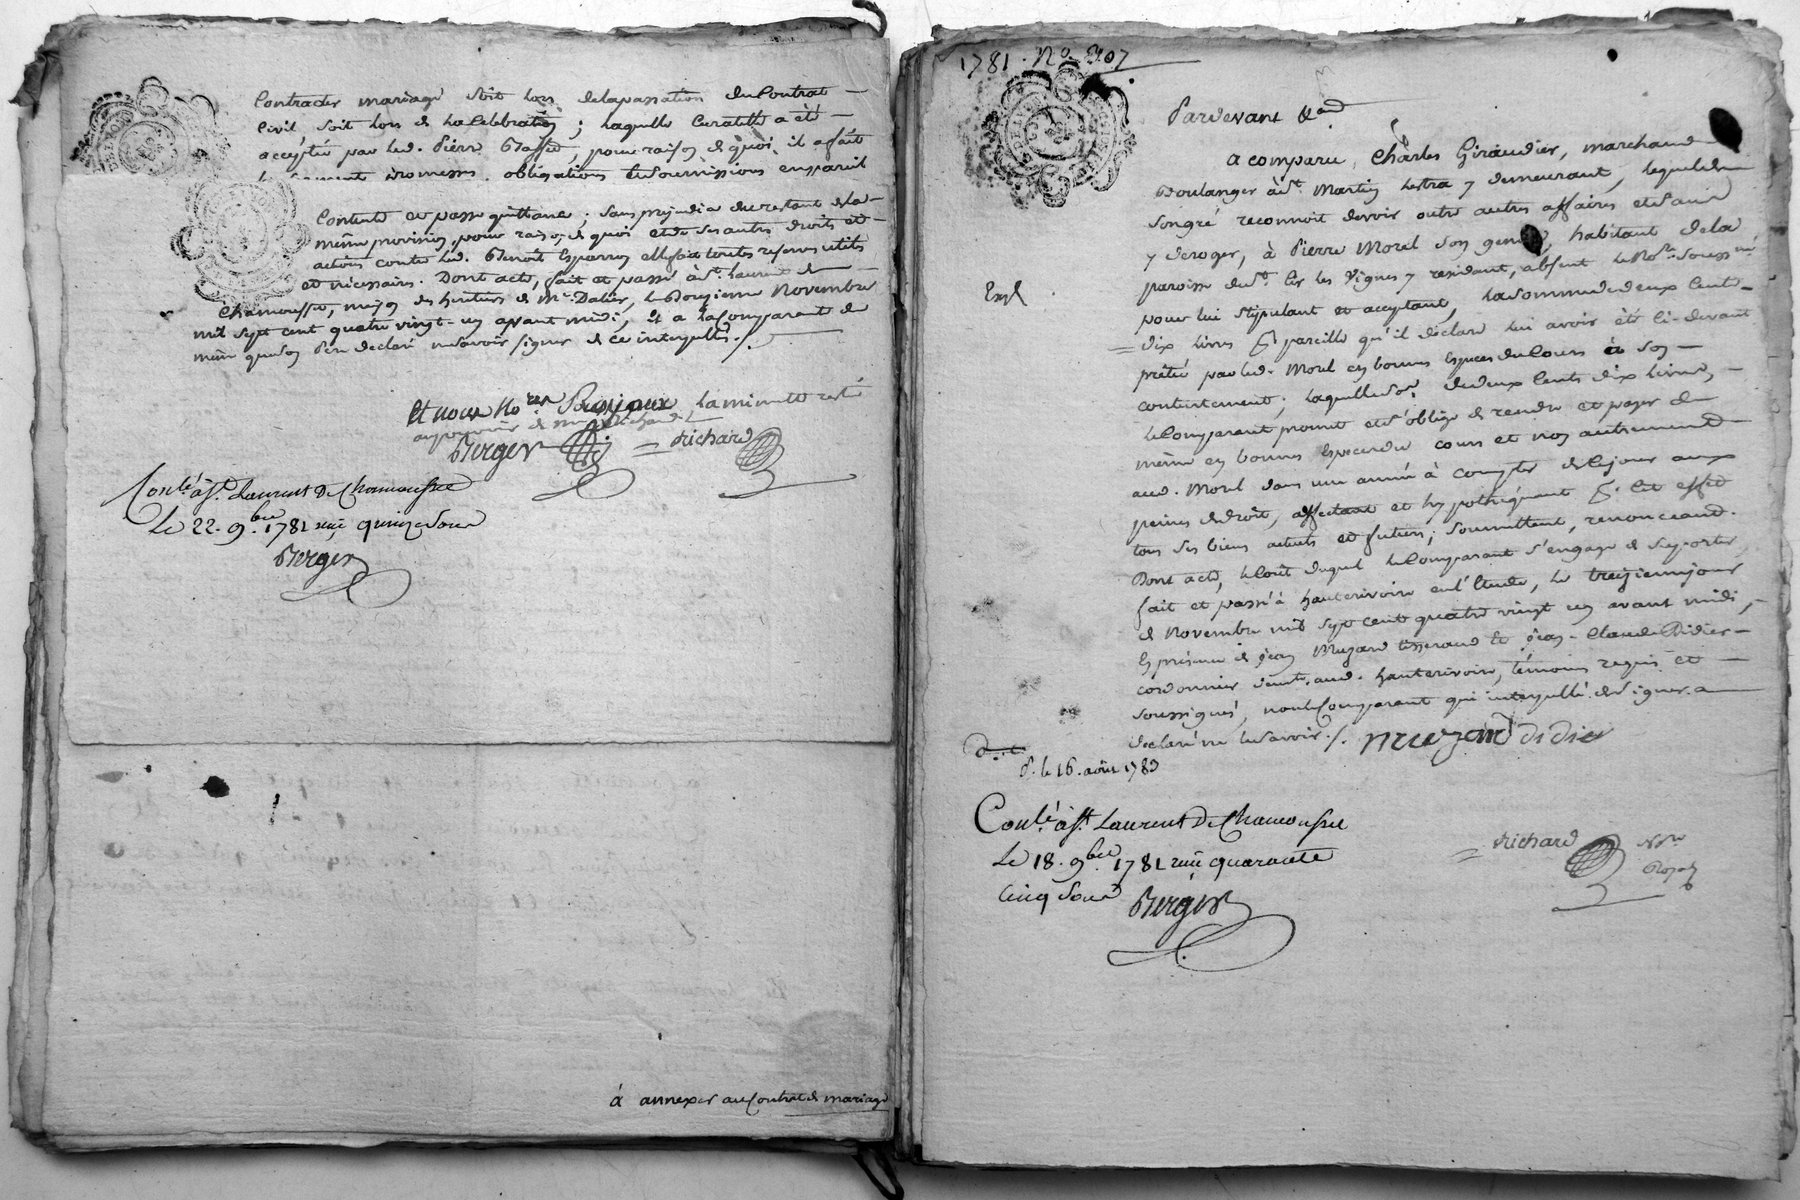 Contracter mariage soit lors de la passation du Contrat
Civil, soit lors de la Célébration ; laquelle Curatelle a été
acceptée par led. Pierre Basset, pour raison de quoi, il a fait
promesses, obligations et soumissions en pareil
Contente et passe quittance ; sans préjudice du restant de la
même provision, pour raison de quoi et de ses autres droits et
actions contre led. Benoit Esparron elle fait toutes reserves utiles
et necessaires. Dont acte, fait et passé à St. Laurent de
Chamousset, maison des heritiers de Mr. Dalier, le Douzieme Novembre
mil sept cent quatre vingt-un avant midi, et a la Comparante de
même que son déclaré ne savoir signer de ce interpellés ./.
Et nous No.res Soussignés, la minutte resté
au pouvoir de me. Richard
Berger richard
Conlé. à St. Laurent De Chamousset
Le 22. 9.bre 1781 reçu quinze Sous
Berger
à annexer au Contrat de mariage
1781. No. 307
Pardevant &a
a comparu, Charles Giraudier, marchand
Boulanger à St. Martin Lestra y demeurant, lequel de
son gré reconnoit devoir outre autres affaires et sans
y deroger, à Pierre Morel son gendre, habitant de la
paroisse de St. Cir les Vignes y residant, absent le No.re Soussigné
Exp
pour lui stipulant et acceptant, la somme de deux Cents
dix livres pareille qu'il déclare lui avoir été ci-devant
prêtée par led. Morel en bonnes Especes du Cours à son
contentement ; laquelle Somme de deux Cents dix livres,
le Comparant promet et s'oblige de rendre et payer de
même en bonnes Especes du cours et non autrement
aud. Morel dans une année à compter de ce jour aux
peines de droit, affectant et hypothéquant Cet effet
tous ses biens actuels et futurs ; soumettant, renonceant.
Dont acte, le Coût duquel le Comparant s'engage de suporter,
fait et passé à hauterivoire en l'Etude, le treizieme jour
de Novembre mil Sept Cent quatre vingt un avant midi,
En présence de Jean Muzard tisserand et Jean-Claude Didier
cordonnier demt. aud. hauterivoire, témoins requis et
soussignés, non le Comparant qui interpellé de signer a
déclaré ne le savoir ./. muzard didier
d. le 16. aout 1783
Conlé. à St. Laurent De Chamousset
Le 18. 9bre 1781 reçu quarante
Cinq Sous Berger
richard No.re
Royal